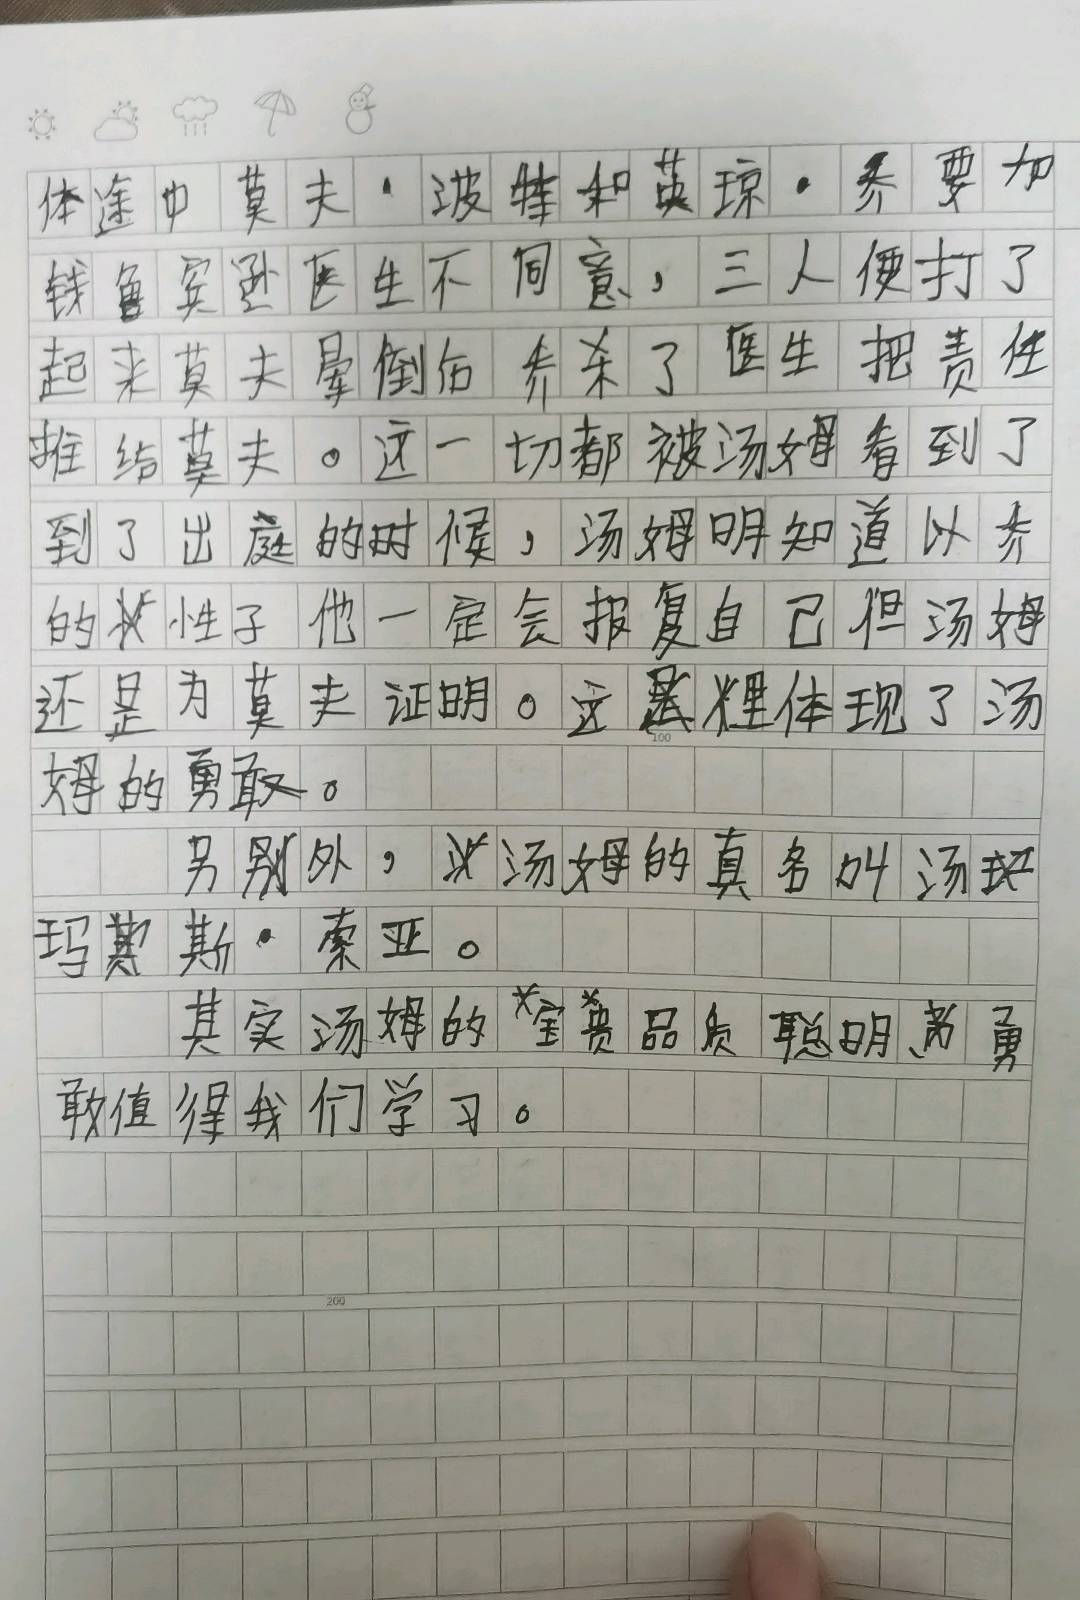 体途中莫夫·波特和英琼·乔要加
钱鲁宾逊医生不同意，三人便打了
起来莫夫晕倒后乔杀了医生把责任
推给莫夫。这一切都被汤姆看到了
到了出庭的时候，汤姆明知道以乔
的性子他一定会报复自己但汤姆
还是为莫夫证明。这里体现了汤
100
姆的勇敢。
另外，汤姆的真名叫汤
玛斯·索亚。
其实汤姆的宝贵品质聪明、勇
敢值得我们学习。
200